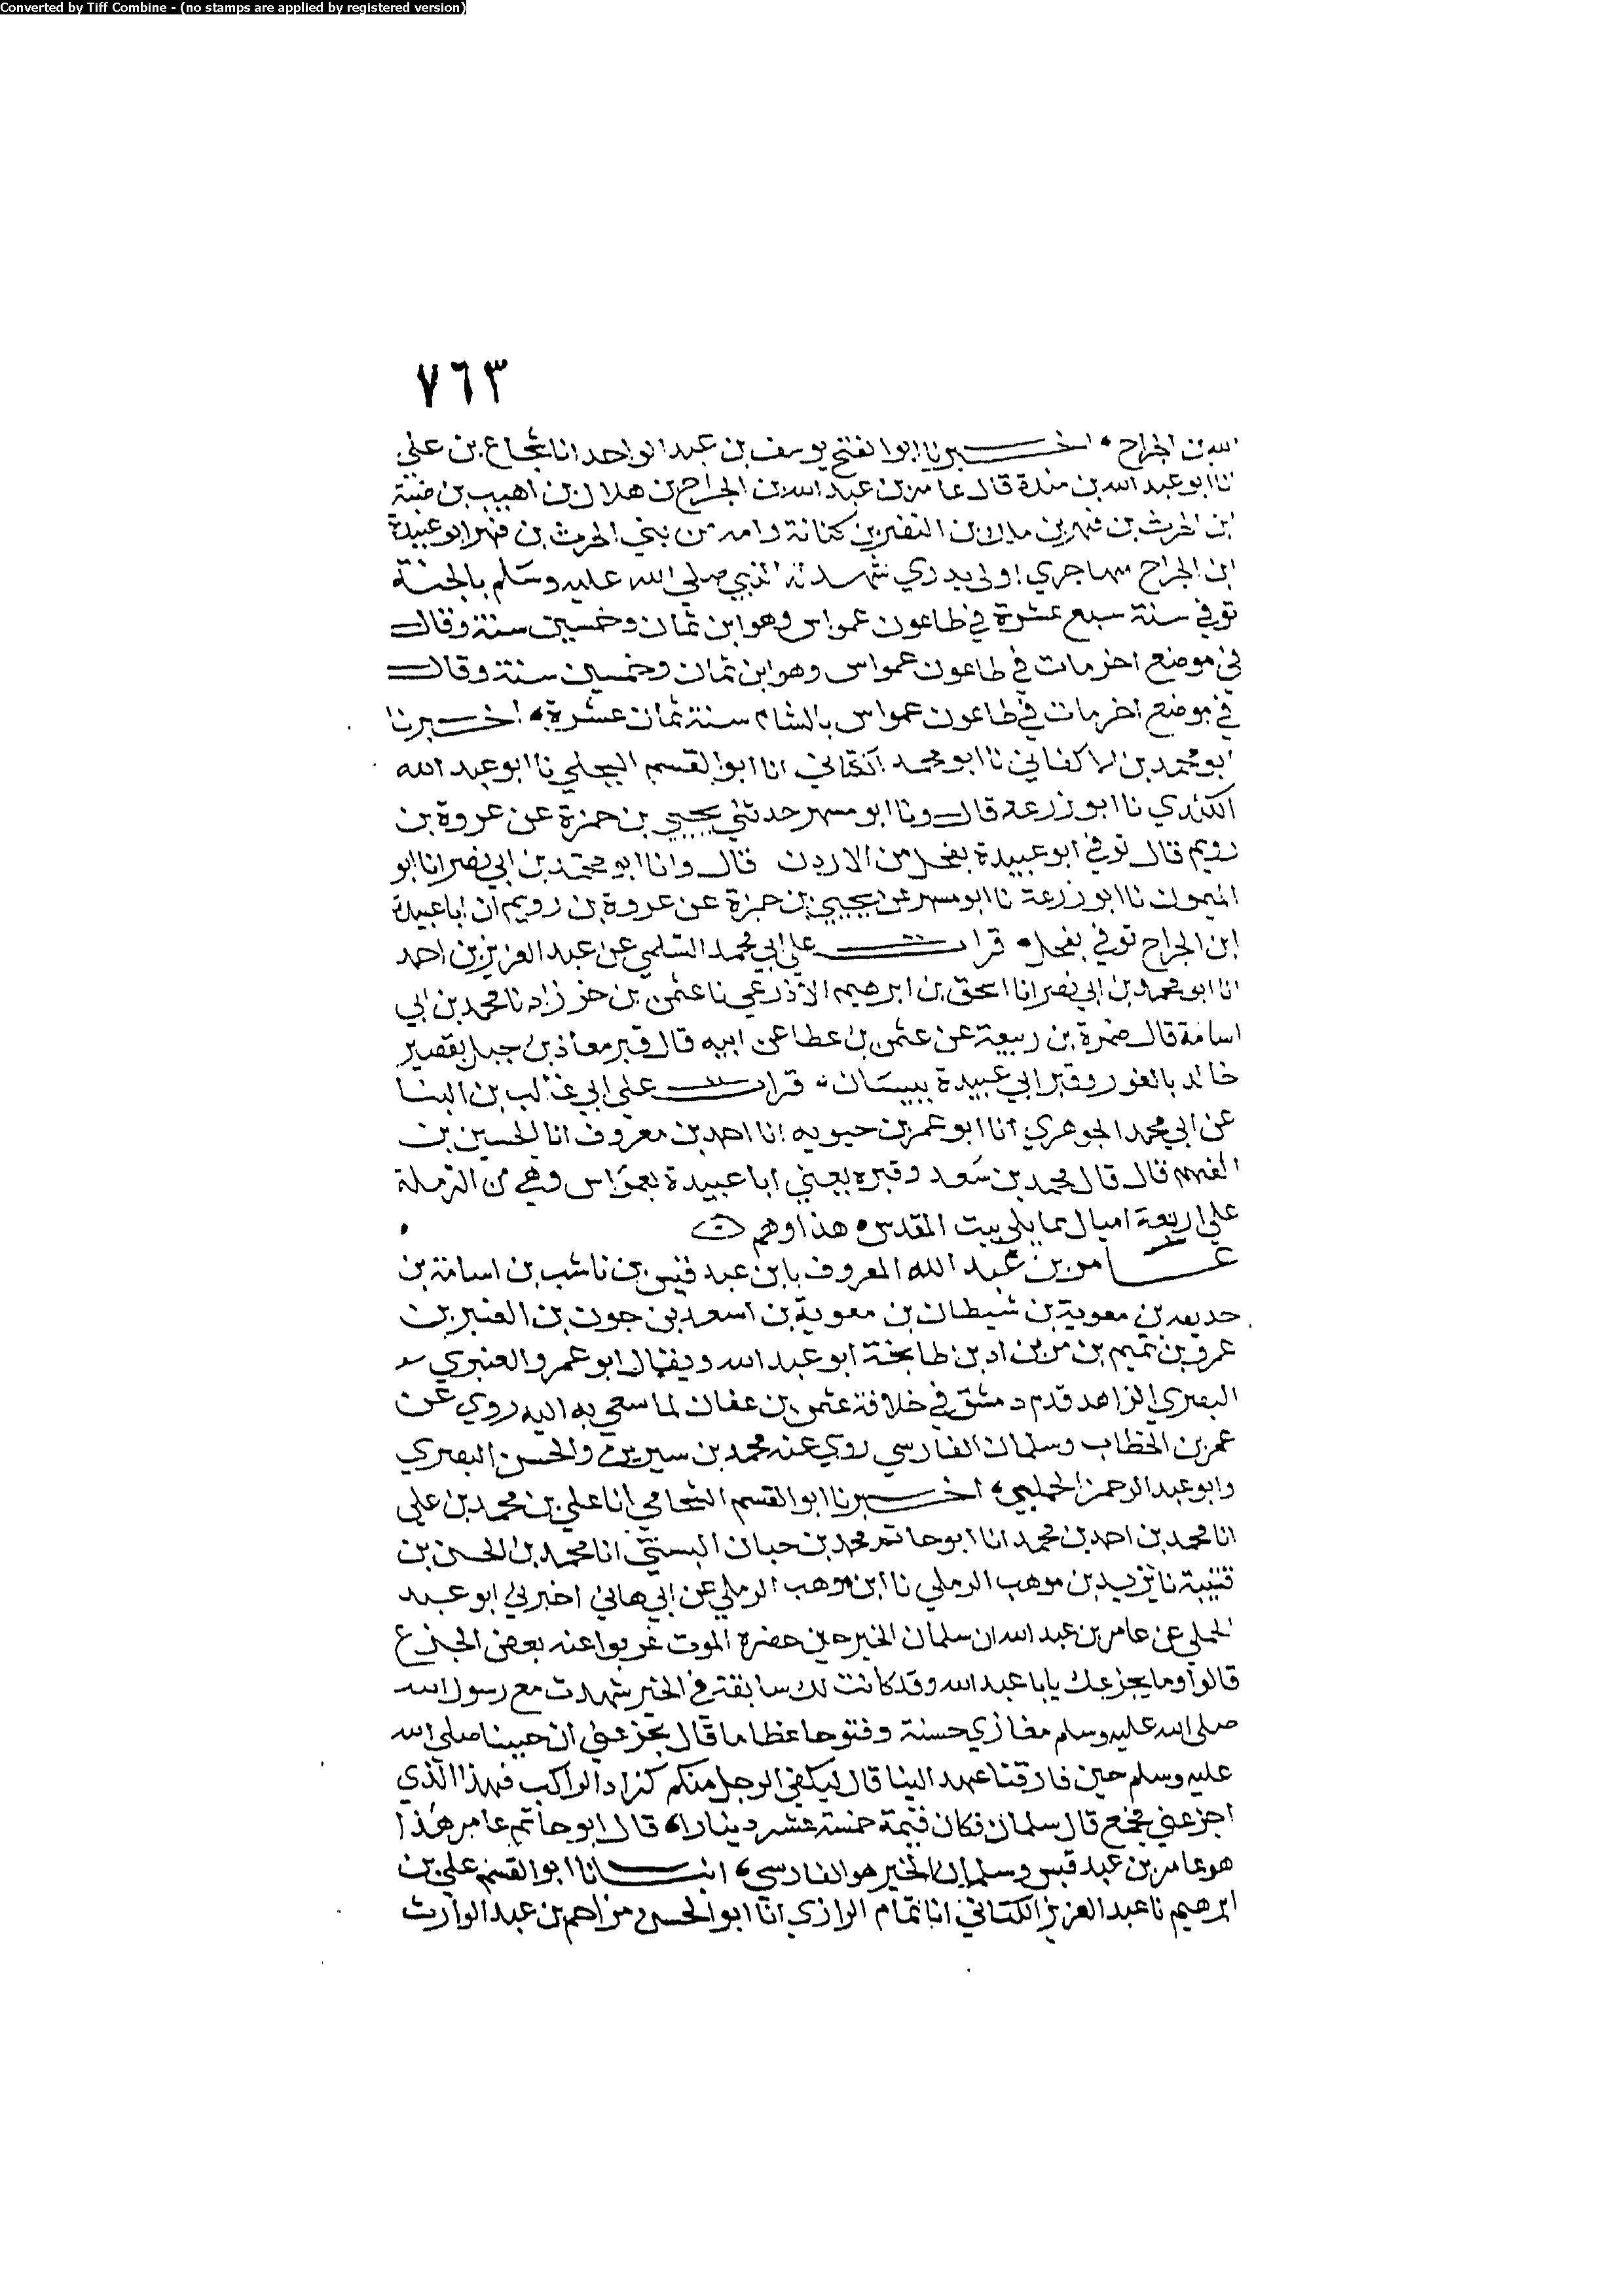 Converted by Tiff Combine - (no stamps are applied by registered version)
٧٦٣
الله بن الجراح اخبرنا ابوا لفتح يوسف بن عبد الواحد انا شجاع بن علي
نا ابو عبد الله بن مندة قال عامر بن عبد الله بن الجراح بن هلال بن اهيب بن ضبة
ابن الحرث بن فهر بن مالك بن النضر بن كنانة وامه من بني الحرث بن فهر ابو عبيدة
ابن الجراح مهاجري اولي بدري شهد له النبي صلى الله عليه وسلم بالجنة
توفي سنة سبع عشرة في طاعون عمواس وهو ابن ثمان وخمسين سنة وقال
في موضع اخر مات في طاعون عمواس وهو ابن ثمان وخمسين سنة وقال
في موضع اخر مات في طاعون عمواس بالشام سنة ثمان عشرة اخبرنا
ابو محمد بن الاكفاني نا ابو محمد الكتاني انا ابو القسم البجلي نا ابو عبد الله
الكندي نا ابو زرعة قال ونا ابو مسهر حدثني يحيى بن حمزة عن عروة بن
رويم قال توفي ابو عبيدة بفحل من الاردن قال وانا ابو محمد بن ابي نصر انا ابو
الميمون نا ابو زرعة نا ابو مسهر عن يحيى بن حمزة عن عروة بن رويم ان ابا عبيدة
ابن الجراح توفي بفحل قرات على ابي محمد السلمي عن عبد العزيز بن احمد
انا ابو محمد بن ابي نصر انا اسحق بن ابرهيم الاذرعي نا عثمن بن خرزاد نا محمد بن ابي
اسامة قال ضمرة بن ربيعة عن عثمن بن عطا عن ابيه قال قبر معاذ بن جبل بقصير
خالد بالغور وقبر ابي عبيدة ببيسان قرات على ابي غالب بن البنا
عن ابي محمد الجوهري انا ابو عمر بن حيويه انا احمد بن معروف انا الحسين بن
الفهم قال قال محمد بن سعد وقبره يعني ابا عبيدة بعمواس وهي من الرملة
على اربعة اميال مما يلي بيت المقدس هذا وهم
عامر بن عبد الله المعروف بابن عبد قيس بن ناشب بن اسامة بن
حديمه بن معوية بن شيطان بن معوية بن اسعد بن جون بن العنبر بن
عمرو بن تميم بن مر بن اد بن طابخة ابو عبد الله ويقال ابو عمرو العنبري
البصري الزاهد قدم دمشق في خلافة عثمن بن عفان لما سعي به اليه روي عن
عمر بن الخطاب وسلمان الفارسي روي عنه محمد بن سيرين والحسن البصري
وابو عبد الرحمن الحبلي اخبرنا ابو القسم الشحامي انا علي بن محمد بن علي
انا محمد بن احمد بن محمد انا ابو حاتم محمد بن حبان البستي انا محمد بن الحسن بن
قتيبة نا يزيد بن موهب الرملي نا ابن وهب الرملي عن ابي هاني اخبرني ابو عبد
الحبلي عن عامر بن عبد الله ان سلمان الخير حين حضره الموت عرفوا عنه بعض الجزع
قالوا وما يجزعك يابا عبد الله وقد كانت لك سابقة في الخير شهدت مع رسول الله
صلى الله عليه وسلم مغازي حسنة وفتوحا عظاما قال يجزعني ان حبيبنا صلى الله
عليه وسلم حين فارقنا عهد الينا قال ليكفي الرجل منكم كزاد الراكب فهذا الذي
اجزعني فجمع قال سلمان فكان قيمة خمسة عشر دينارا قال ابو حاتم عامر هذا
هو عامر بن عبد قيس وسلمان الخير هو الفارسي انبانا ابو القسم علي بن
ابرهيم نا عبد العزيز الكتاني انا تمام الرازي انا ابو الحسن مزاحم بن عبد الوارث